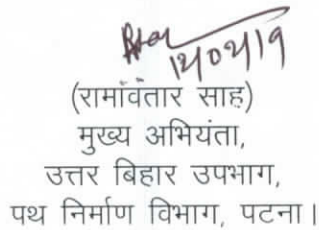 (रामांवतार साह)
मुख्य अभियंता,
उत्तर बिहार उपभाग,
पथ निर्माण विभाग, पटना।